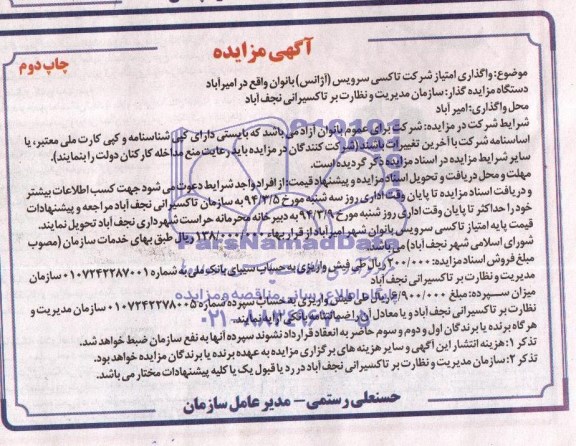 آگهی مزایده
چاپ دوم
موضوع: واگذاری امتیاز شرکت تاکسی سرویس (آژانس) بانوان واقع در امیرآباد
دستگاه مزایده گذار: سازمان مدیریت و نظارت بر تاکسیرانی نجف آباد
محل واگذاری: امیر آباد
شرایط شرکت در مزایده: شرکت برای عموم بانوان آزاد می باشد که بایستی دارای کپی شناسنامه و کپی کارت ملی معتبر، یا
اساسنامه شرکت با آخرین تغییرات باشند (شرکت کنندگان در مزایده باید رعایت منع مداخله کارکنان دولت را بنمایند).
سایر شرایط مزایده در اسناد مزایده ذکر گردیده است.
مهلت و محل دریافت و تحویل اسناد مزایده و پیشنهاد قیمت: از افراد واجد شرایط دعوت می شود جهت کسب اطلاعات بیشتر
و دریافت اسناد مزایده تا پایان وقت اداری روز سه شنبه مورخ ۹۴/۳/۵ به سازمان تاکسیرانی نجف آباد مراجعه و پیشنهادات
خود را حداکثر تا پایان وقت اداری روز شنبه مورخ ۹۴/۳/۹ به دبیرخانه محرمانه حراست شهرداری نجف آباد تحویل نمایند.
قیمت پایه امتیاز تاکسی سرویس بانوان شهر امیرآباد از قرار بهاء ۱۳۸/۰۰۰/۰۰۰ ریال طبق بهای خدمات سازمان (مصوب
شورای اسلامی شهر نجف آباد) می باشد.
مبلغ فروش اسناد مزایده: ۲۰۰/۰۰۰ ریال طی فیش واریزی به حساب سیبای بانک ملی به شماره ۰۱۰۷۲۴۲۲۸۷۰۰۱ سازمان
مدیریت و نظارت بر تاکسیرانی نجف آباد
میزان سپرده: مبلغ ۶/۹۰۰/۰۰۰ ریال طی فیش واریزی به حساب سپرده شماره ۰۱۰۷۲۴۲۲۷۸۰۰۵ سازمان مدیریت و
نظارت بر تاکسیرانی نجف آباد و یا معادل آن ضمانتنامه بانکی ارایه نمایند.
هرگاه برنده یا برندگان اول و دوم و سوم حاضر به انعقاد قرارداد نشوند سپرده آنها به نفع سازمان ضبط خواهد شد.
تذکر ۱: هزینه انتشار این آگهی و سایر هزینه های برگزاری مزایده به عهده برنده یا برندگان مزایده خواهد بود.
تذکر ۲: سازمان مدیریت و نظارت بر تاکسیرانی نجف آباد در رد یا قبول یک یا کلیه پیشنهادات مختار می باشد.
حسنعلی رستمی - مدیر عامل سازمان
ParsNamadData
پایگاه اطلاع رسانی مناقصه و مزایده